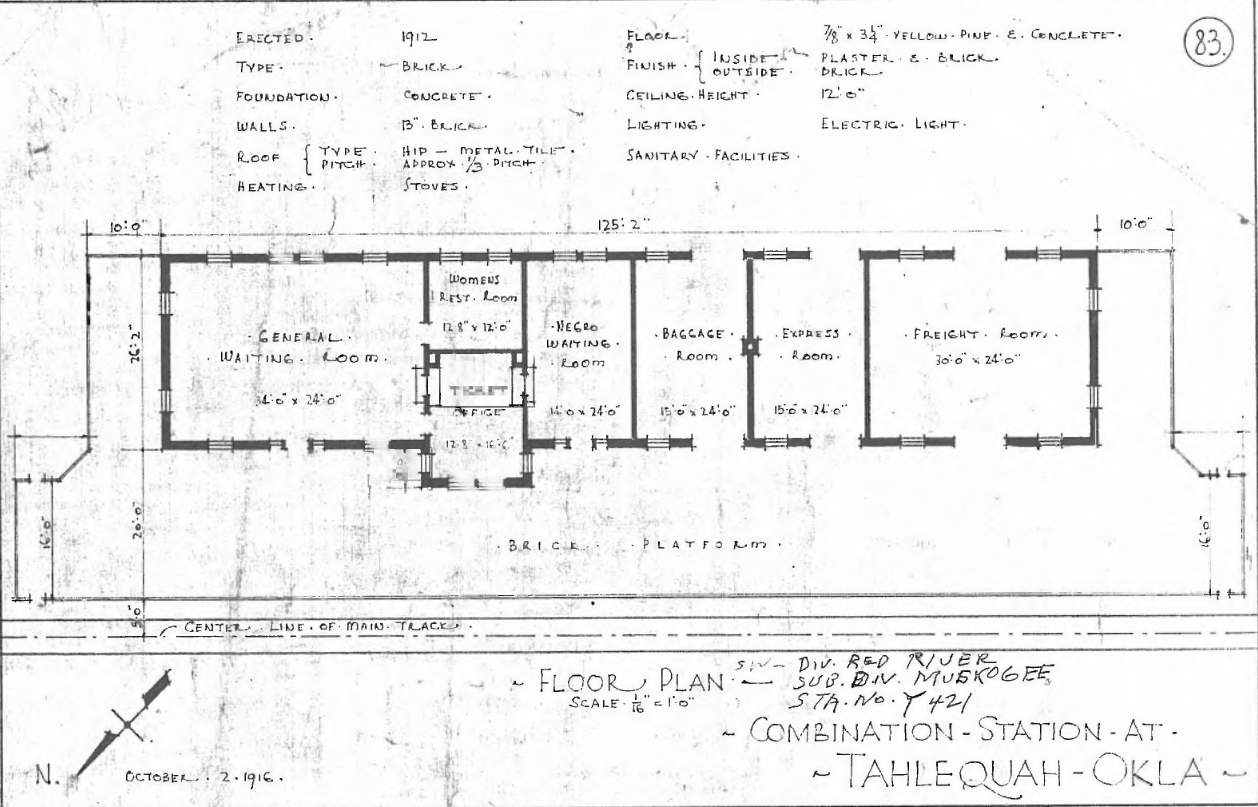 83.
ERECTED. 1912
TYPE. BRICK.
FOUNDATION. CONCRETE.
WALLS. 13" BRICK.
ROOF { TYPE. HIP — METAL. TILE.
PITCH. APPROX. 1/3 PITCH.
HEATING. STOVES.
FLOOR. 7/8" x 3 1/4" YELLOW. PINE. & CONCRETE.
FINISH. { INSIDE PLASTER. & BRICK.
OUTSIDE. BRICK.
CEILING. HEIGHT. 12'-0"
LIGHTING. ELECTRIC. LIGHT.
SANITARY. FACILITIES.
10'-0"
125'-2"
10'-0"
26'-2"
.GENERAL.
.WAITING. ROOM.
x 24'-0"
WOMENS
REST. ROOM
12'8" x 12'-0"
TICKET
OFFICE
.NEGRO
WAITING.
.ROOM
14'-0 x 24'-0"
.BAGGAGE.
ROOM.
15'-0" x 24'-0"
.EXPRESS.
ROOM.
15'-0" x 24'-0"
.FREIGHT. ROOM.
30'-0" x 24'-0"
16'-0"
20'-0"
16'-0"
.BRICK. .PLATFORM.
CENTER. LINE. OF. MAIN. TRACK.
~ FLOOR PLAN —
SCALE. 1/16" = 1'-0"
DIV. RED RIVER
SUB. DIV. MUSKOGEE
STA. NO. Y 421
~ COMBINATION - STATION - AT -
~ TAHLEQUAH - OKLA ~
N.
OCTOBER. 2. 1916.